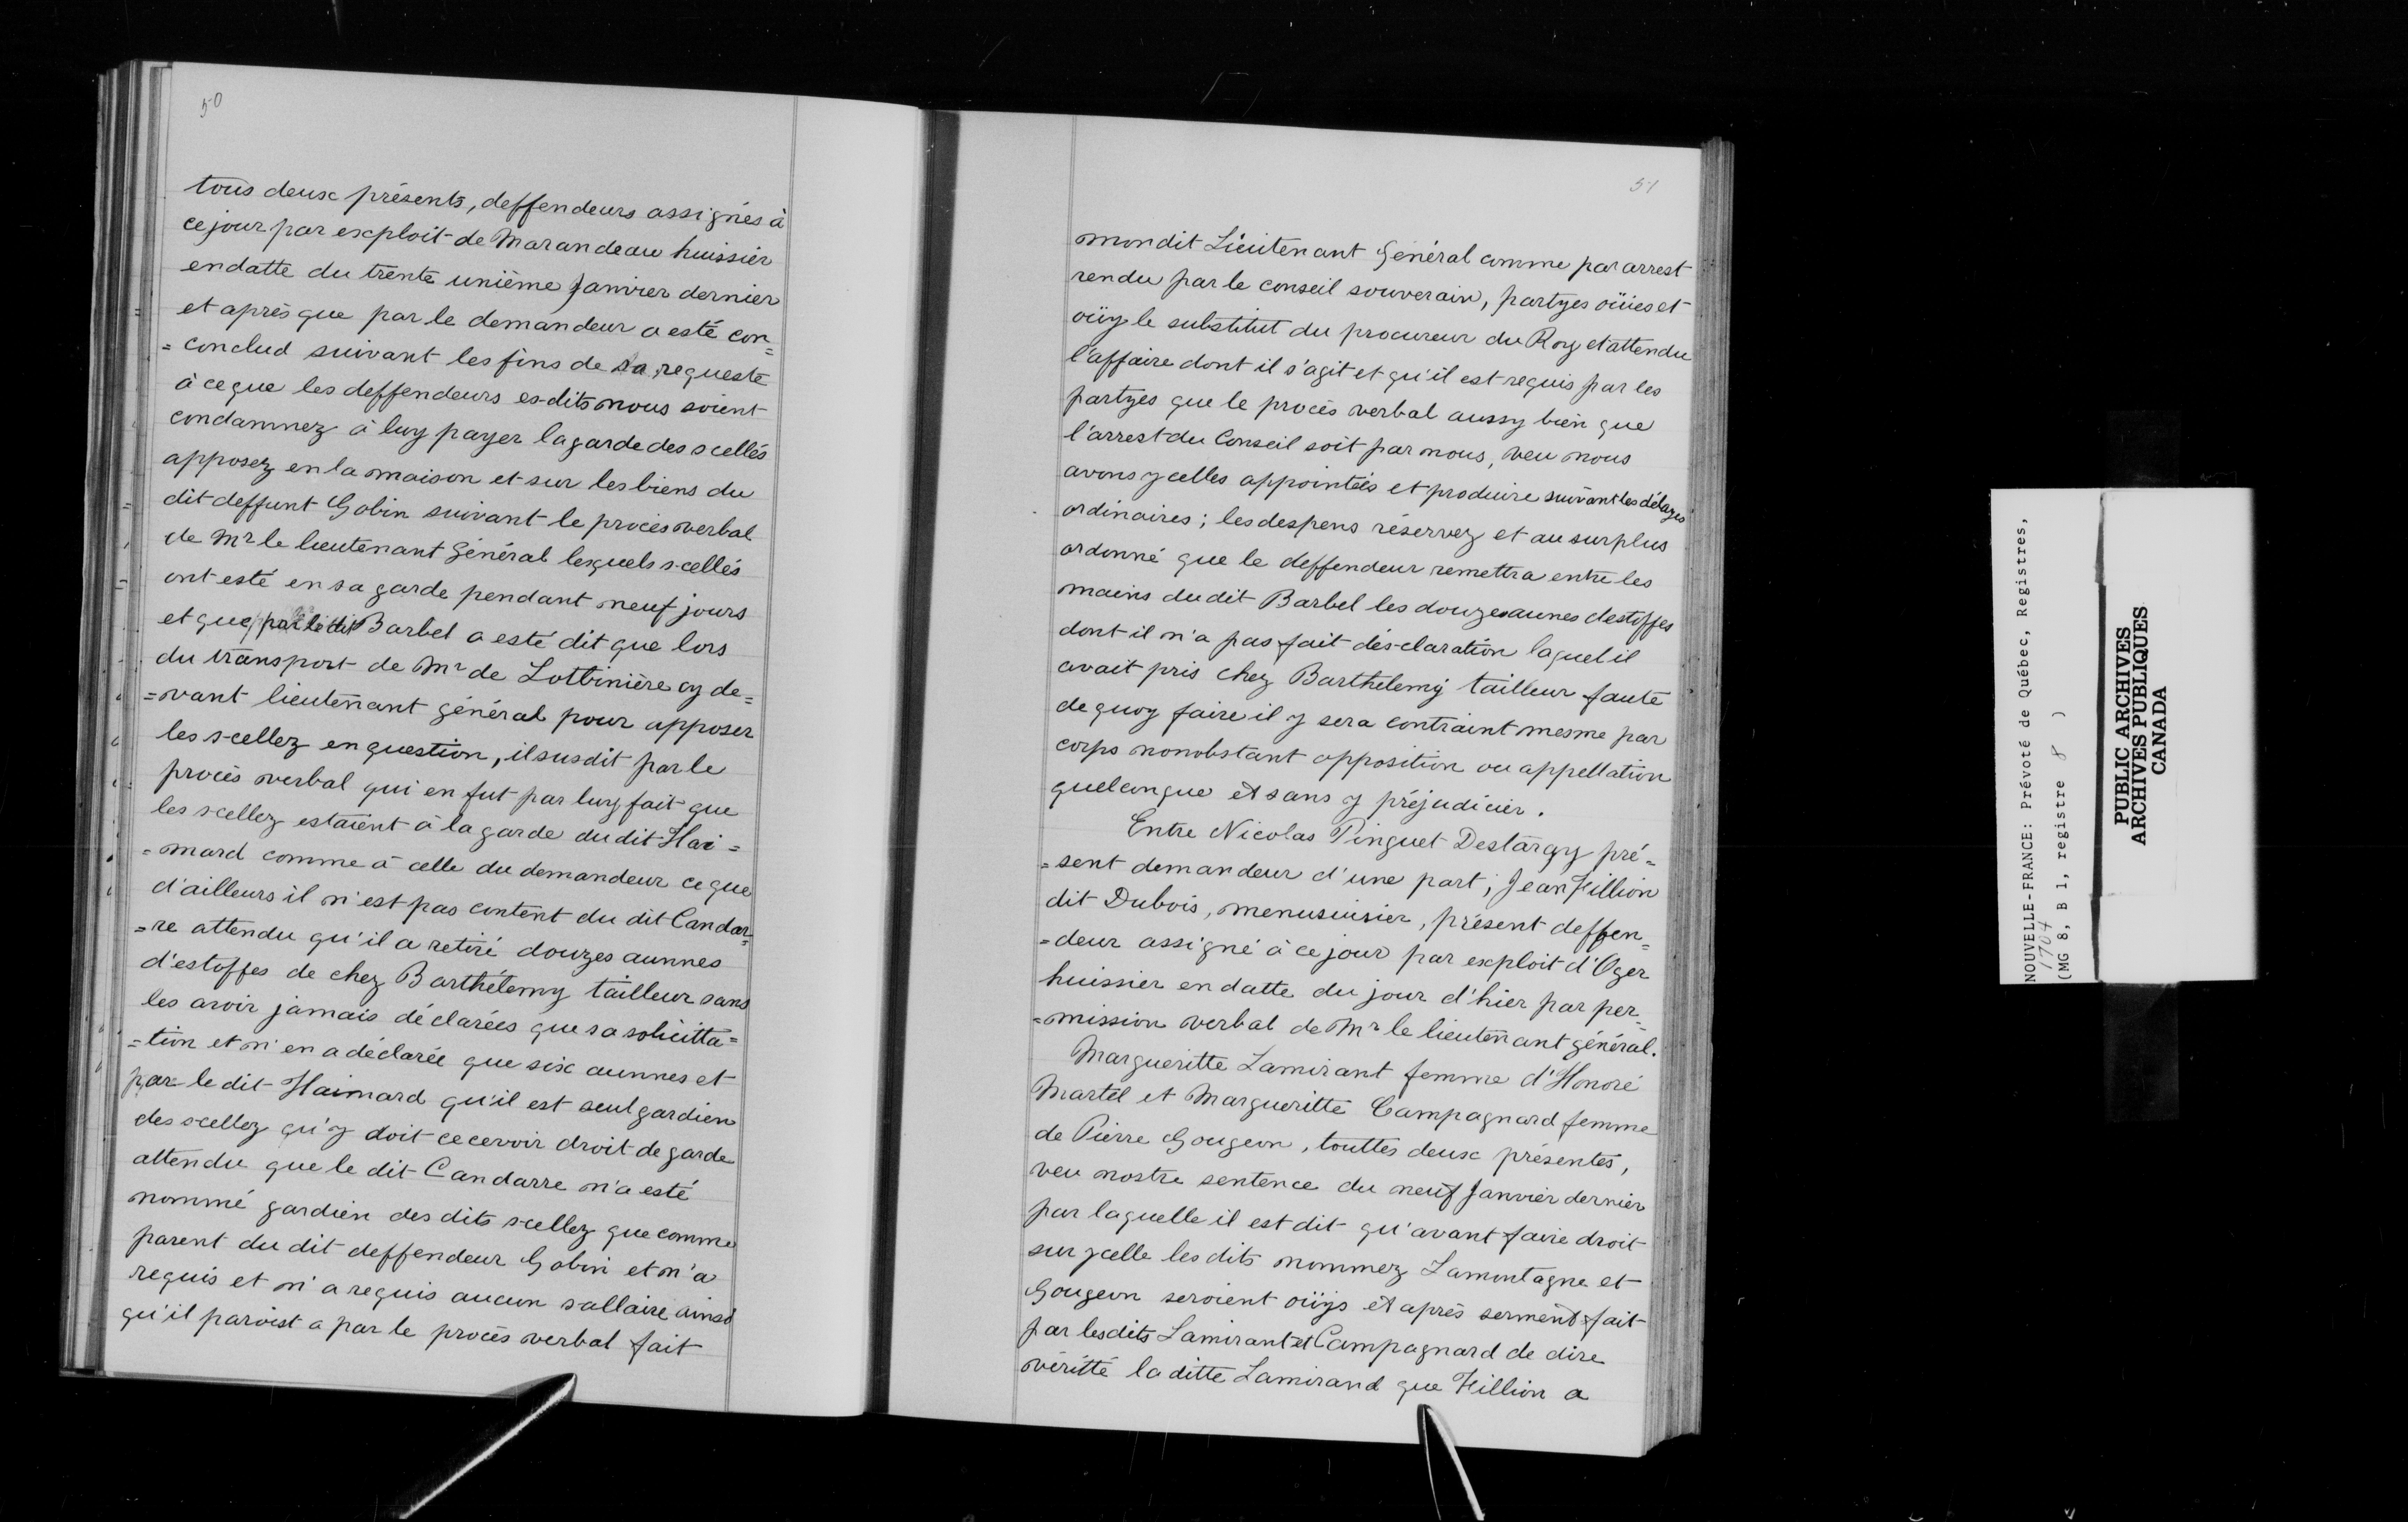 50
tous deux présents, deffendeurs assignés à
ce jour par exploit de Marandeau huissier
en datte du trente unième Janvier dernier
et après que par le demandeur a esté con=
=conclud suivant les fins de sa requeste
à ce que les deffendeurs es-dits nous soient
condamnez à luy payer la garde des scellés
apposez en la maison et sur les biens du
dit deffunt Gobin suivant le procès verbal
de Mr le lieutenant Général lesquels scellés
ont esté en sa garde pendant neuf jours
et que par le dit Barbel a esté dit que lors
du transport de Mr de Lotbinière cy de=
=vant lieutenant général pour apposer
les scellez en question, il susdit par le
procès verbal qui en fut par luy fait que
les scellez estaient à la garde du dit Hai=
=mard comme à celle du demandeur ce que
d'ailleurs il n'est pas content du dit Candar=
=re attendu qu'il a retiré douzes aunnes
d'estoffes de chez Barthélemy tailleur sans
les avoir jamais déclarées que sa solicitta=
=tion et n'en a déclarée que six aunnes et
par le dit Haimard qu'il est seul gardien
des scellez qu'y doit cecervoir droit de garde
attendu que le dit Candarre n'a esté
nommé gardien des dits scellez que comme
parent du dit deffendeur Gobin et n'a
requis et n'a requis aucun sallaire ainsi
qu'il paroist a par le procès verbal fait
51
mondit Lieutenant Général comme par arrest
rendu par le conseil souverain, partyes oüies et
oüy le substitut du procureur du Roy et attendu
l'affaire dont il s'agit et qu'il est requis par les
partyes que le procès verbal aussy bien que
l'arrest du Conseil soit par nous, veu nous
avons ycelles appointées et produire suivant les délayes
ordinaires; les despens réservez et au surplus
ordonné que le deffendeur remettra entre les
mains du dit Barbel les douzes aunes d'estoffes
dont il n'a pas fait désclaration laquel il
avait pris chez Barthelemy tailleur faute
de quoy faire il y sera contraint mesme par
corps nonobstant opposition ou appellation
quelconque et sans y préjudicier.
Entre Nicolas Pinguet Destargy pré=
=sent demandeur d'une part; Jean Fillion
dit Dubois, menusuisier, présent deffen=
=deur assigné à ce jour par exploit d'Oger
huissier en datte du jour d'hier par per=
=mission verbal de Mr le lieutenant général.
Margueritte Lamirant femme d'Honoré
Martel et Margueritte Campagnard femme
de Pierre Gougeon, touttes deux présentes,
veu nostre sentence du neuf Janvier dernier
par laquelle il est dit qu'avant faire droit
sur ycelle les dits nommez Lamontagne et
Gougeon seroient oüys et après serment fait
par lesdits Lamirant et Campagnard de dire
véritté la ditte Lamirand que Fillion a
NOUVELLE-FRANCE: Prévoté de Québec, Registres,
1704
(MG 8, B 1, registre 8 )
PUBLIC ARCHIVES
ARCHIVES PUBLIQUES
CANADA